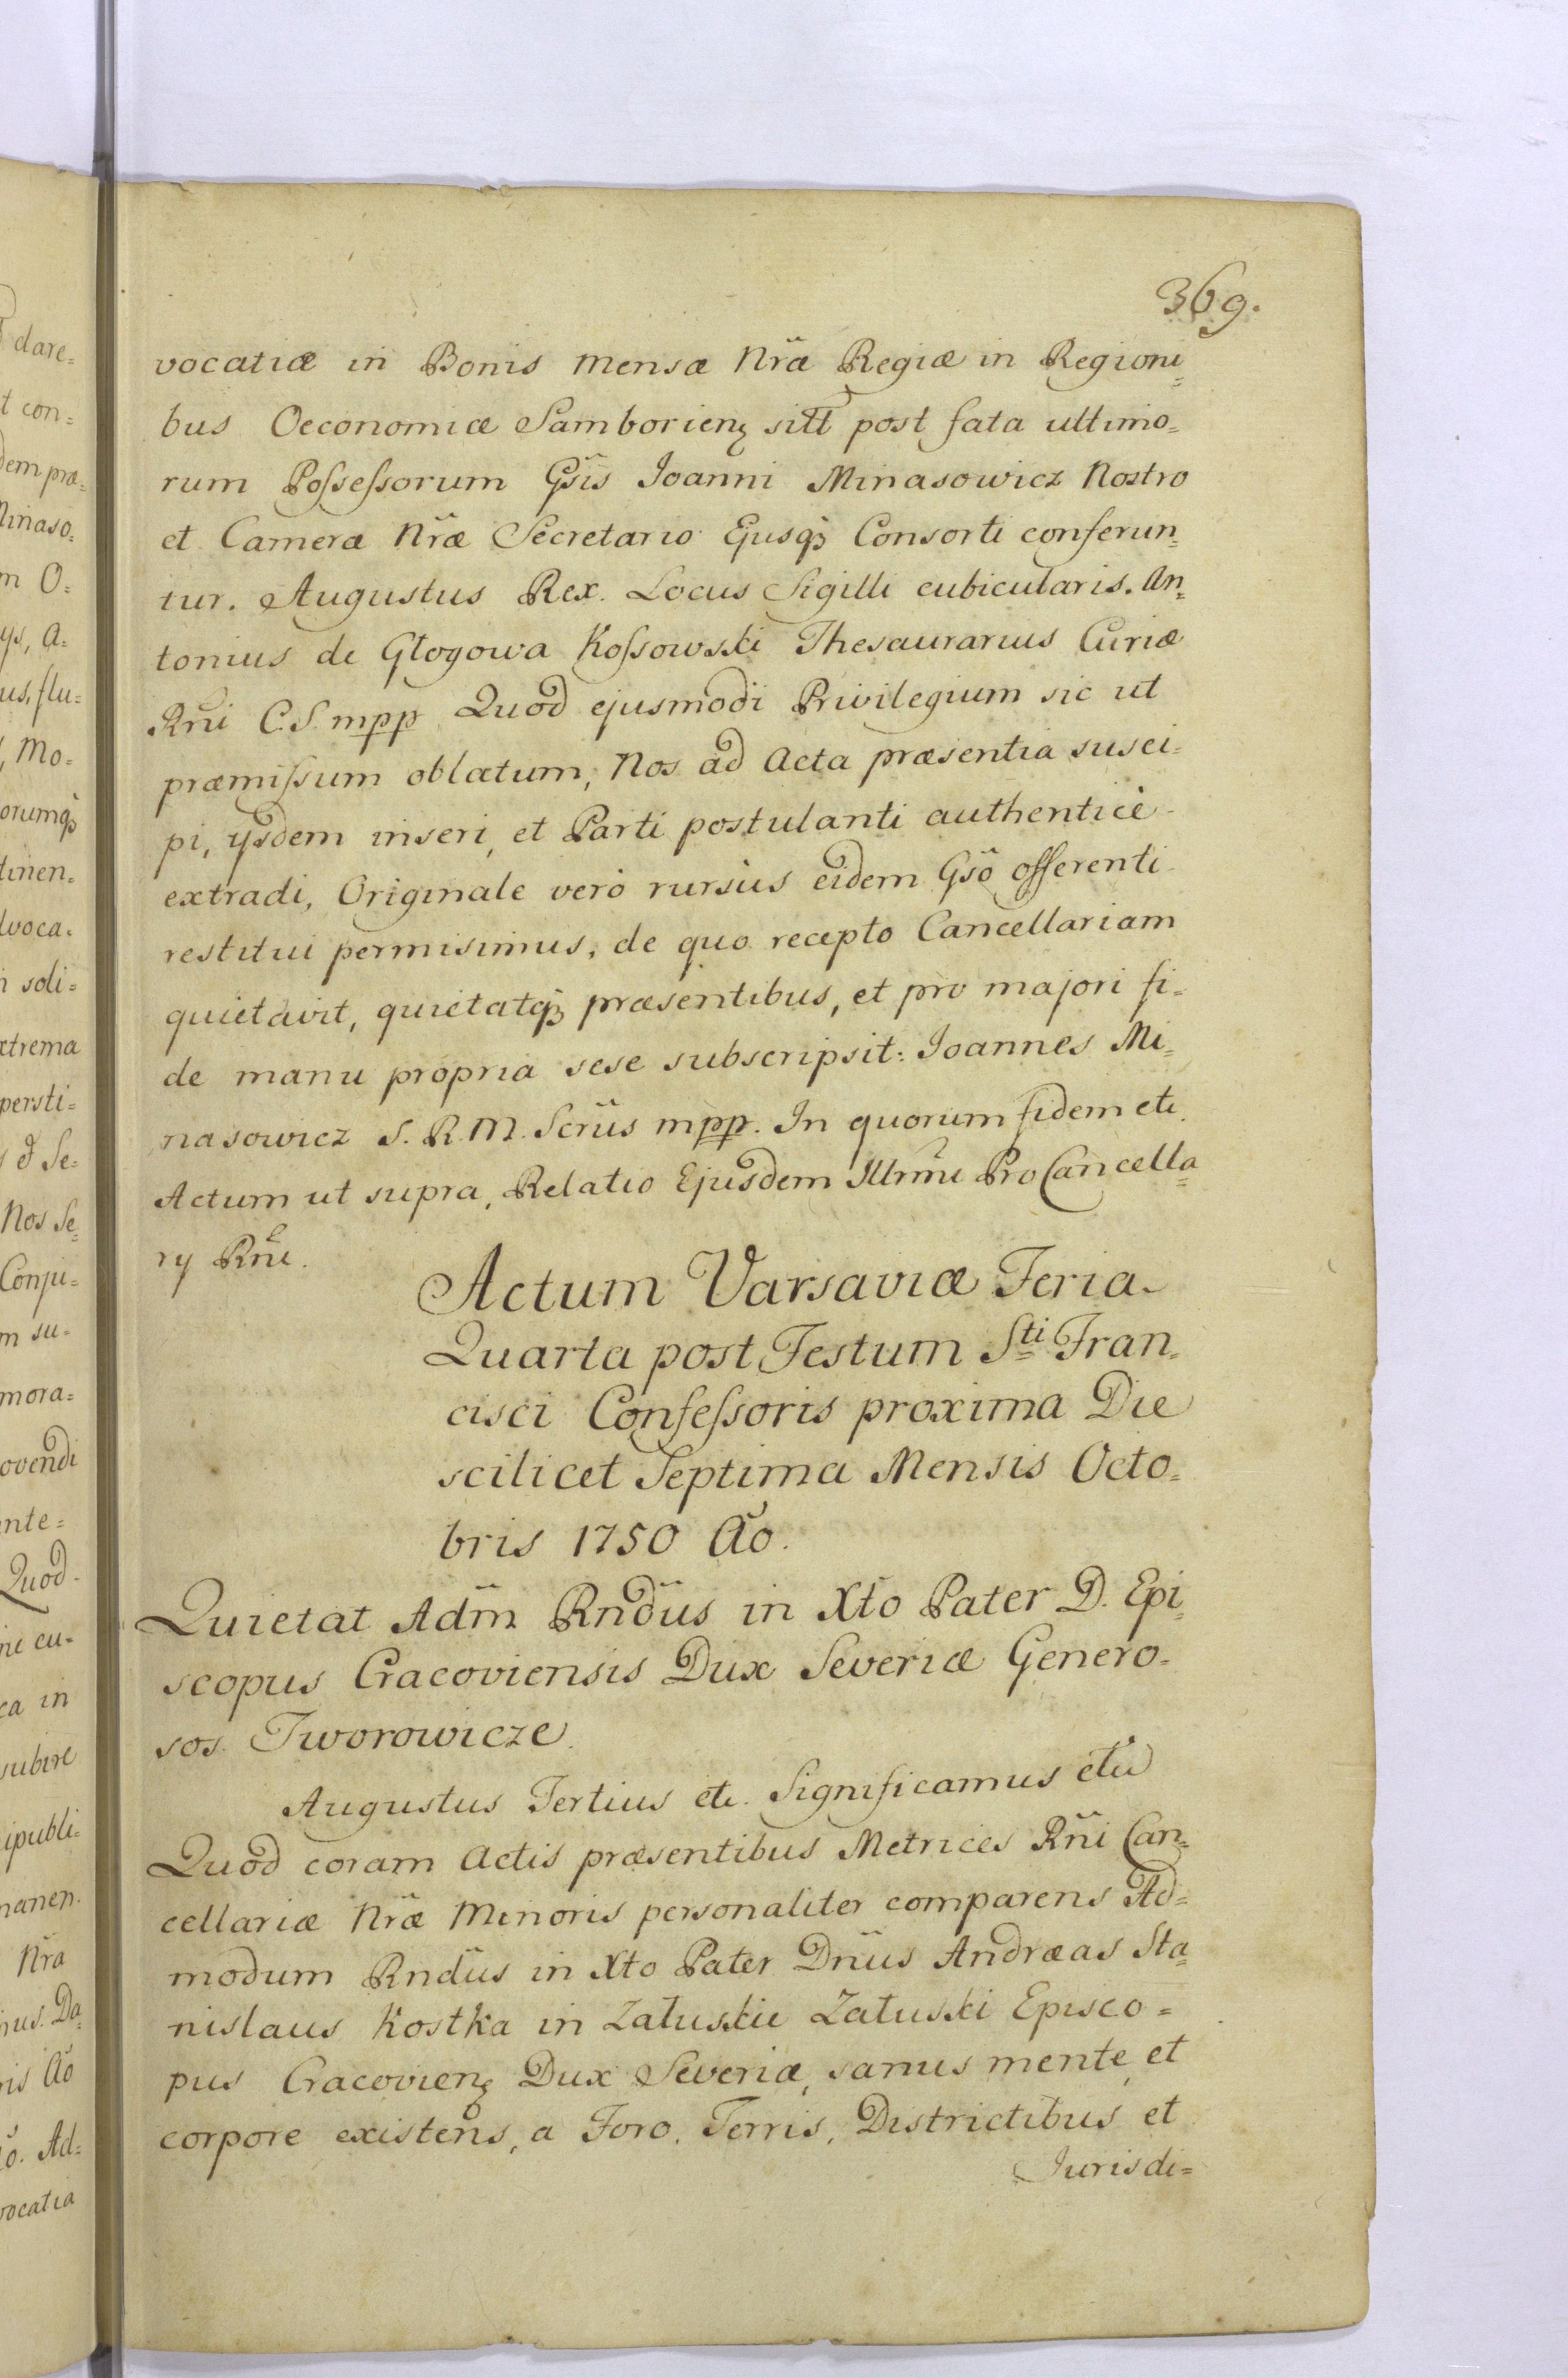 369.
vocatiæ in Bonis mensæ Nræ Regiæ in Regioni=
bus Oeconomiæ Samborienʒ sitt post fata ultimo=
rum Poſseſsorum Gsis Joanni Minasowicz Nostro
et Cameræ Nræ Secretario Ejusqʒ Consorti conferun=
tur. Augustus Rex. Locus Sigilli cubicularis. An=
tonius de Głogowa Koſsowski Thesaurarius Curiæ
Rni C.S. mpp Quod ejusmodi Privilegium sic ut
præmiſsum oblatum, Nos ad Acta præsentia susci=
pi, ijsdem inseri, et Parti postulanti authenticè
extradi, Originale verò rursùs eidem Gsõ offerenti
restitui permisimus, de quo recepto Cancellariam
quietavit, quietatqʒ præsentibus, et pro majori fi=
de manu propria sese subscripsit: Joannes Mi=
nasowicz S. R. M. Scrius mpp. In quorum fidem etc.
Actum ut supra, Relatio Ejusdem Illrmi ProCancella=
rij Rni.
Actum Varsaviæ Feria
Quarta post Festum Sti Fran=
cisci Confeſsoris proxima Die
scilicet Septima Mensis Octo=
bris 1750 Ao.
Quietat Adm̃ Rndus in Xto Pater D. Epi=
scopus Cracoviensis Dux Severiæ Genero=
sos Tworowicze.
Augustus Tertius etc. Significamus etc
Quod coram Actis præsentibus Metrices Rni Can=
cellariæ Nræ Minoris personaliter comparens Ad=
modum Rndus in Xto Pater Dnus Andræas Sta=
nislaus Kostka in Załuskie Załuski Episco=
pus Cracovienʒ Dux Severiæ, sanus mente, et
corpore existens, a Foro, Terris, Districtibus et
Jurisdi=